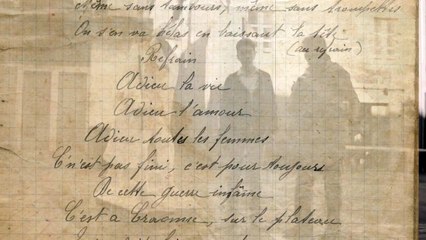 même sans tambours, même sans trompettes
On s'en va là bas en baissant la tête
(au refrain)
Refrain
Adieu la vie
Adieu l'amour
Adieu toutes les femmes
C'n'est pas fini, c'est pour toujours
De cette guerre infâme
C'est à Craonne, sur le plateau